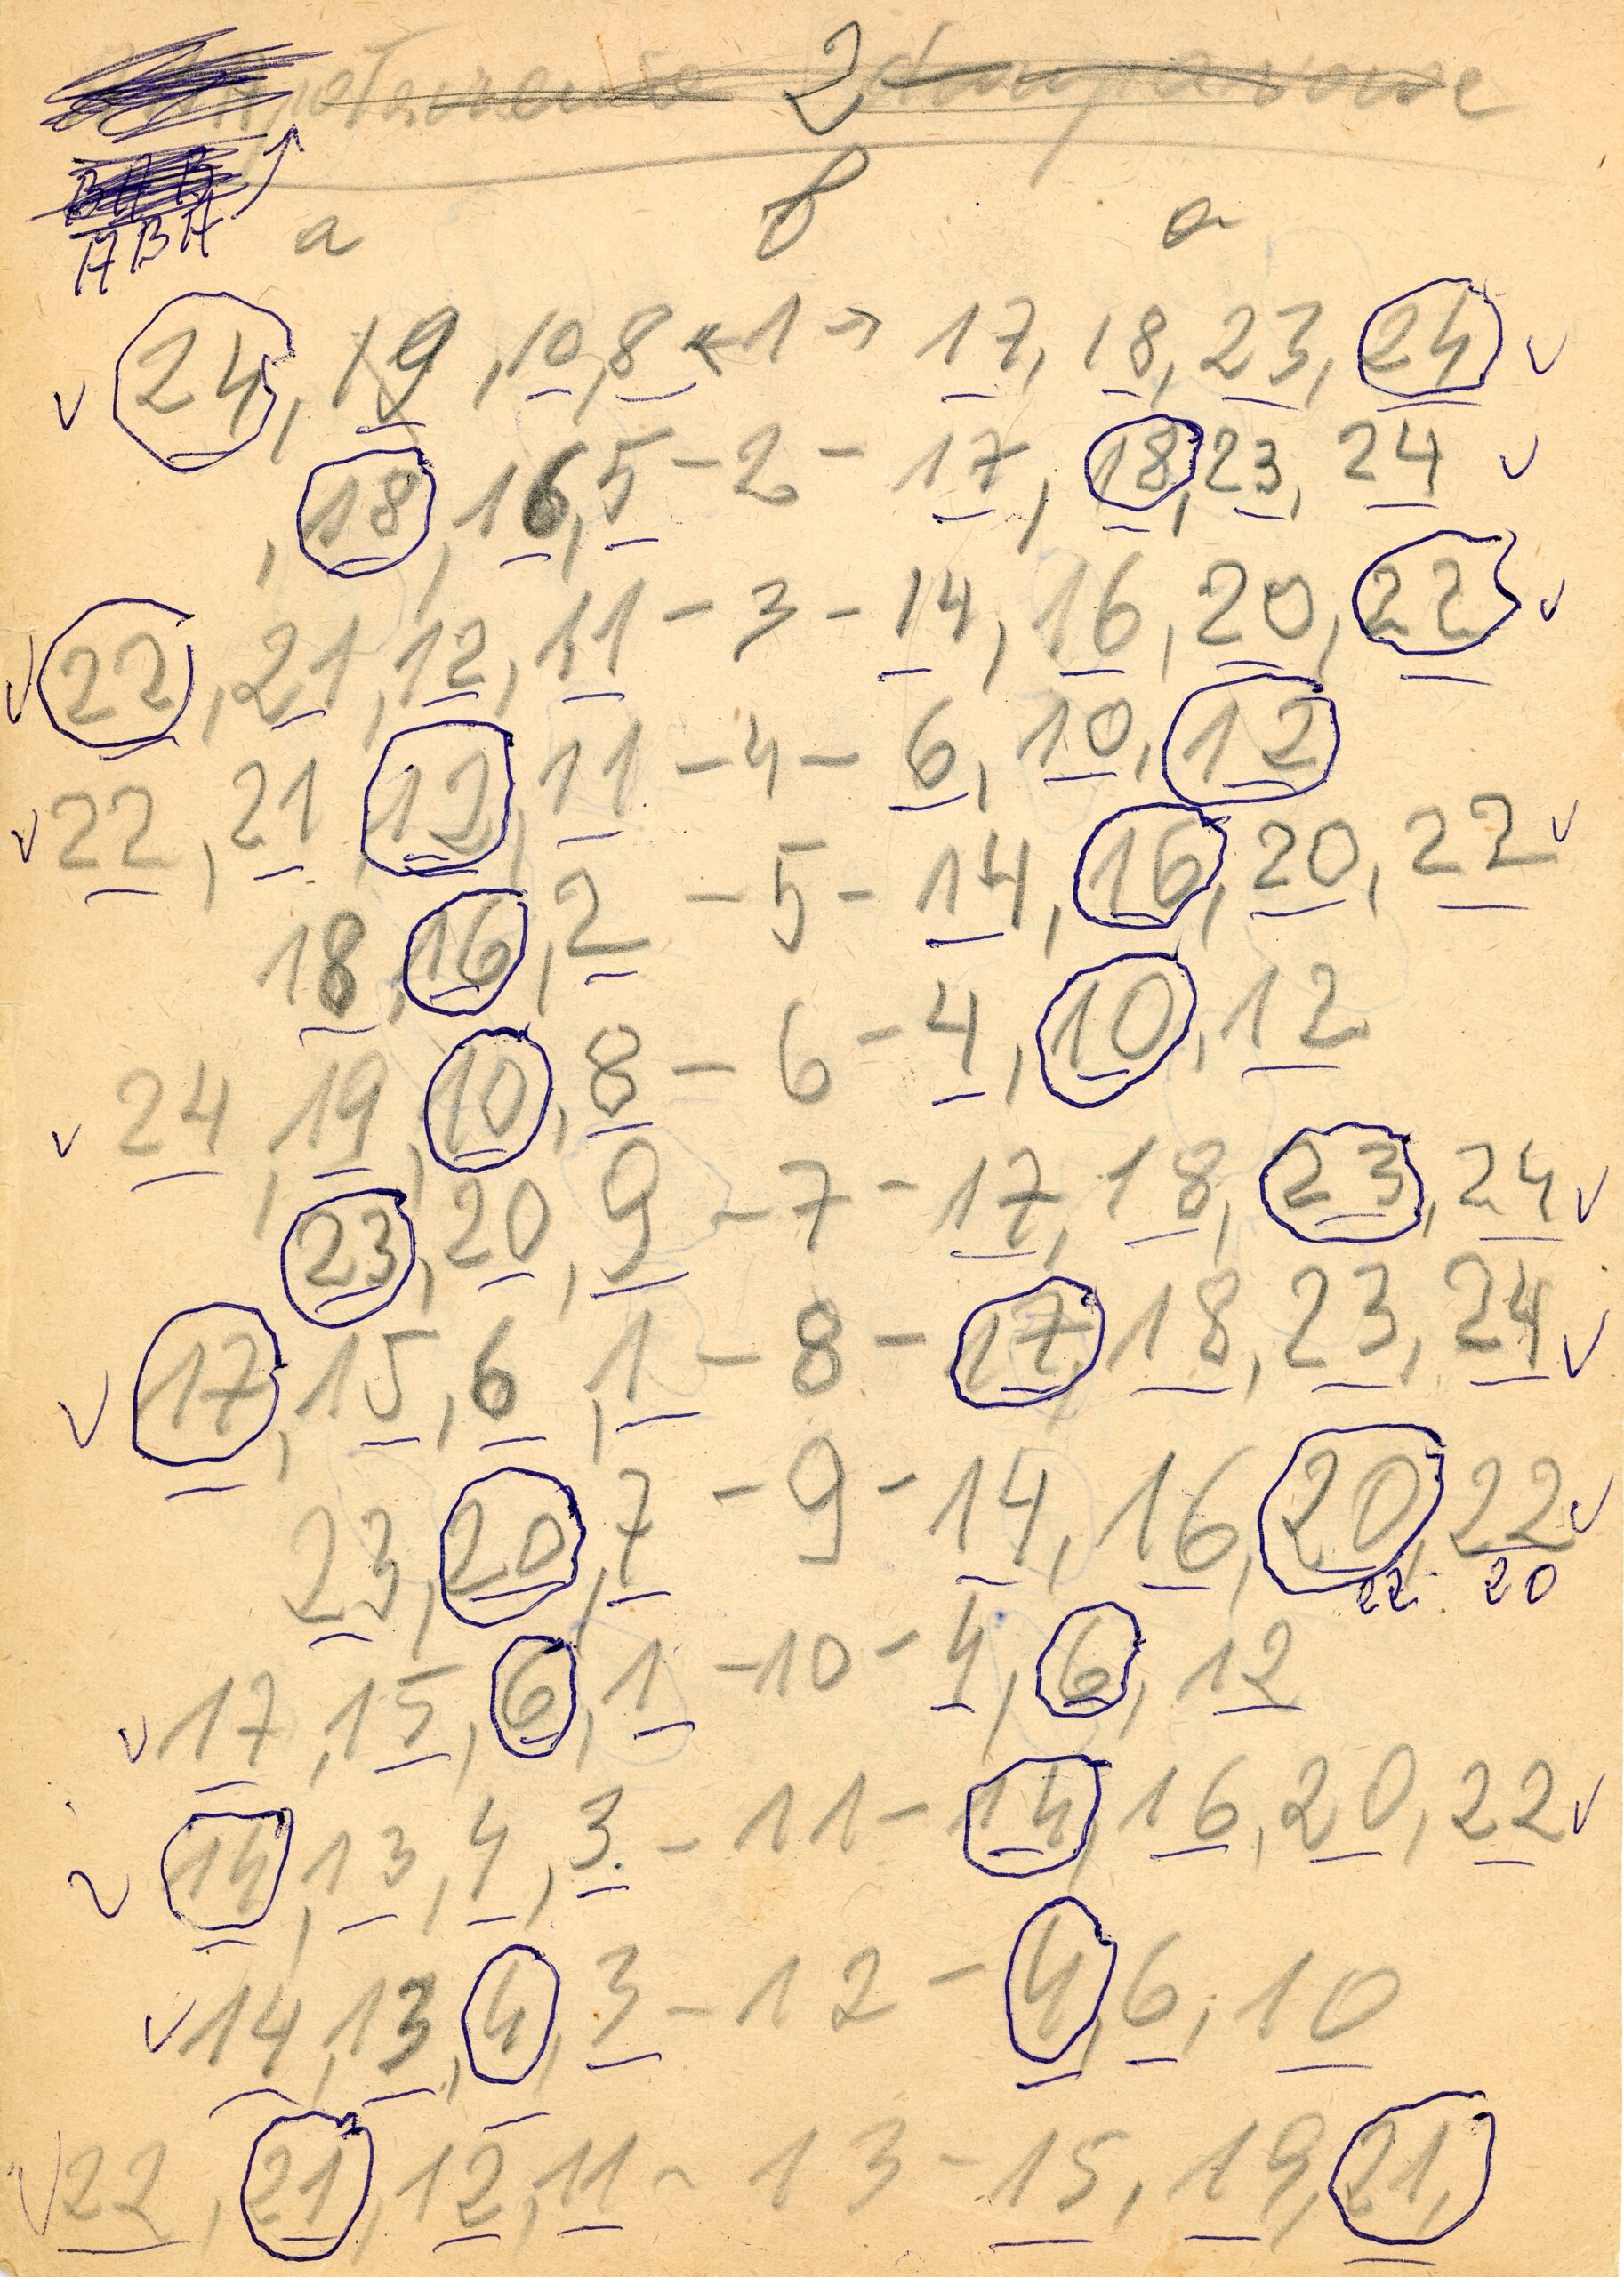 2
ВАВ
АВА
а в а
24, 19, 10, 8 ← 1 → 17, 18, 23, 24
, 18, 16, 5 - 2 - 17, 18, 23, 24
22, 21, 12, 11 - 3 - 14, 16, 20, 22
22, 21, 12, 11 - 4 - 6, 10, 12
18, 16, 2 - 5 - 14, 16, 20, 22
24, 19, 10, 8 - 6 - 4, 10, 12
, 23, 20, 9 - 7 - 17, 18, 23, 24
17, 15, 6, 1 - 8 - 17, 18, 23, 24
23, 20, 7 - 9 - 14, 16, 20, 22
22 20
17, 15, 6, 1 - 10 - 4, 6, 12
14, 13, 4, 3 - 11 - 14, 16, 20, 22
14, 13, 4, 3 - 12 - 4, 6, 10
22, 21, 12, 11 - 13 - 15, 19, 21,